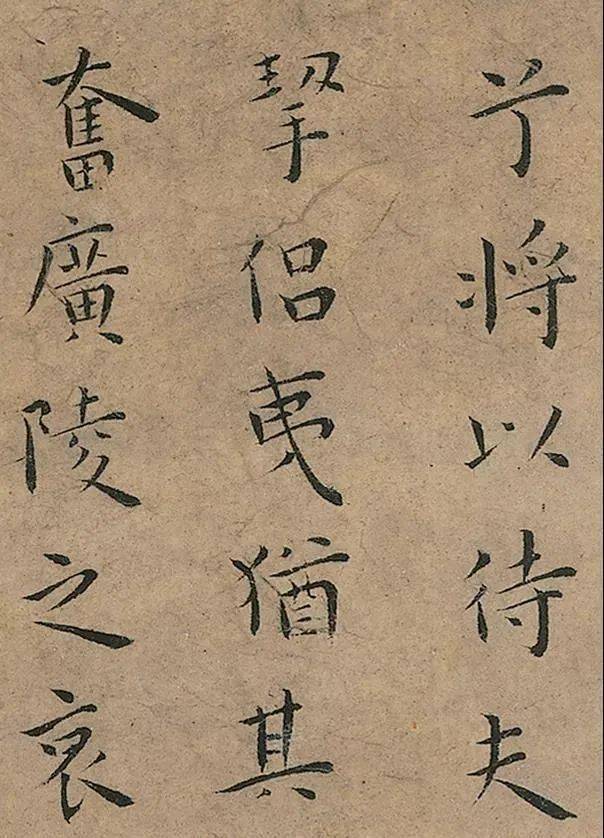 兮将以待夫
挈侣夷猶其
奮廣陵之哀